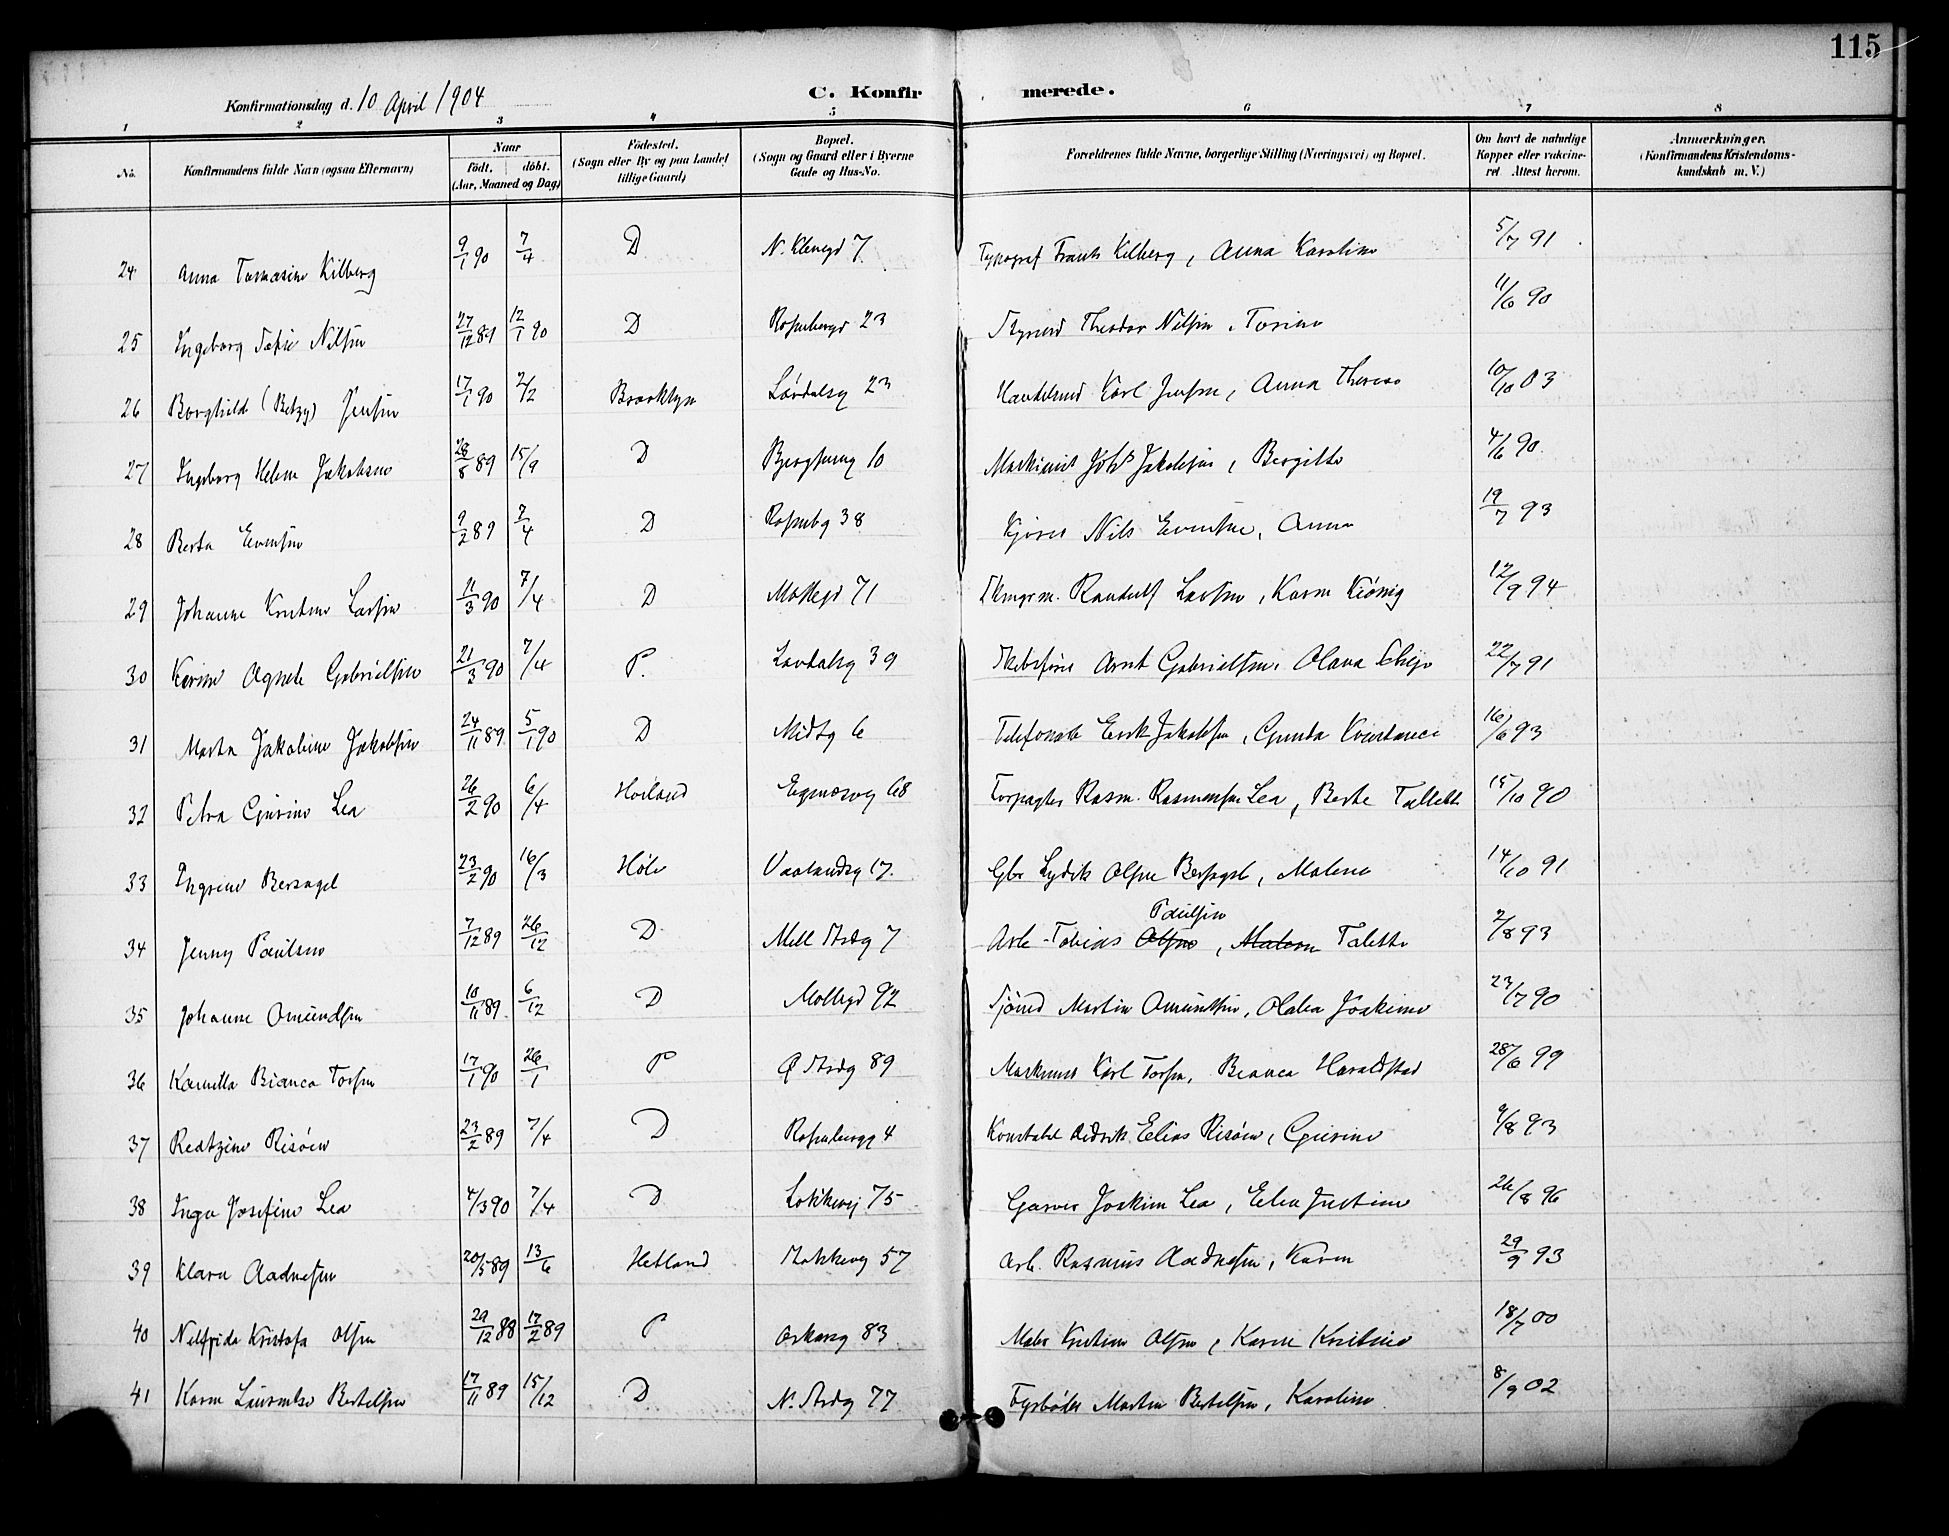 115
Konfirmationsdag d. 10 April 1904
C. Konfirmerede.
1 2 3 4 5 6 7 8
No. Konfirmandens fulde Navn (ogsaa Efternavn) Naar födt. döbt. (Aar, Maaned og Dag) Födested. (Sogn eller By og paa Landet tillige Gaard) Bopæl. (Sogn og Gaard eller i Byerne Gade og Hus-No. Forældrenes fulde Navne, borgerlige Stilling (Næringsvei) og Bopæl. Om havt de naturlige Kopper eller vakcineret Attest herom. Anmærkninger. (Konfirmandens Kristendomskundskab m. V.)
24 Anna Tomasine Kilberg 9/1 90 7/4 D N. 7 Typograf Frants Kilberg, Anna Karoline 5/7 91
25 Ingeborg Sofie Nilsen 27/12 89 12/1 90 D Rosenbergd 23 Theodor Nilsen, Torine 11/6 90
26 Borghild (Betzy) Jensen 17/1 90 2/2 Brooklyn Løvdalsg 23 Karl Jensen, Anna Therese 10/10 03
27 Ingeborg Helene Jakobsen 28/8 89 15/9 D 10 Maskinist Johs Jakobsen, Bergitte 4/6 90
28 Berta Evensen 9/2 89 7/4 D Rosenbg 38 Nils Evensen, Anna 19/7 93
29 Johanne Kristine Larsen 11/3 90 7/4 D Møllegd 71 Randulf Larsen, Karen 12/9 94
30 Karine Agnete Gabrielsen 21/3 90 7/4 P. Løvdalsg 39 Skibsfører Arnt Gabrielsen, Olava 22/7 91
31 Marta Jakobine Jakobsen 24/11 89 5/1 90 D Midtg 6 Erik Jakobsen, Gunda Konstance 16/6 93
32 Petra Gurine Lea 26/2 90 6/4 Høiland Egenæsvg 68 Forpagter Rasm. Rasmussen Lea, Berte Tallette 15/10 90
33 Ingrine Bersagel 23/2 90 16/3 Høle Vaalandsg 17. Gbr Lydik Olsen Bersagel, Malene 14/10 91
34 Jenny Paulsen 7/12 89 26/12 D Mell Strdg 7 Arb. Tobias Olsen Paulsen, Malene Talette 2/8 93
35 Johanne Omundsen 10/11 89 6/12 D Møllegd 92 Sjømd Martin Omundsen, Olalea Joakime 23/7 90
36 Kamilla Bianca Torsen 17/1 90 26/1 P Ø Strdg 89 Karl Torsen, Bianca Haraldstad 28/6 99
37 Reatzine Risøen 23/2 89 7/4 D Rosenbergg 4 Konstabel Didrik Elias Risøen, Gurine 9/8 93
38 Inga Josefine Lea 4/3 90 7/4 D Løkkevej 75 Garver Joakim Lea, Elea Justine 26/8 96
39 Klara Aadnesen 20/5 89 13/6 Hetland Stokkavg 57 Arb. Rasmus Aadnesen, Karen 29/9 93
40 Nilfrida Kristofa Olsen 29/12 88 17/2 89 P Oskarsg 83 Maler Kristian Olsen, Karen Kristine 18/7 00
41 Karen Laurentse Bertelsen 17/11 89 15/12 D N. Strdg 77 Fyrbøder Martin Bertelsen, Karoline 8/9 02